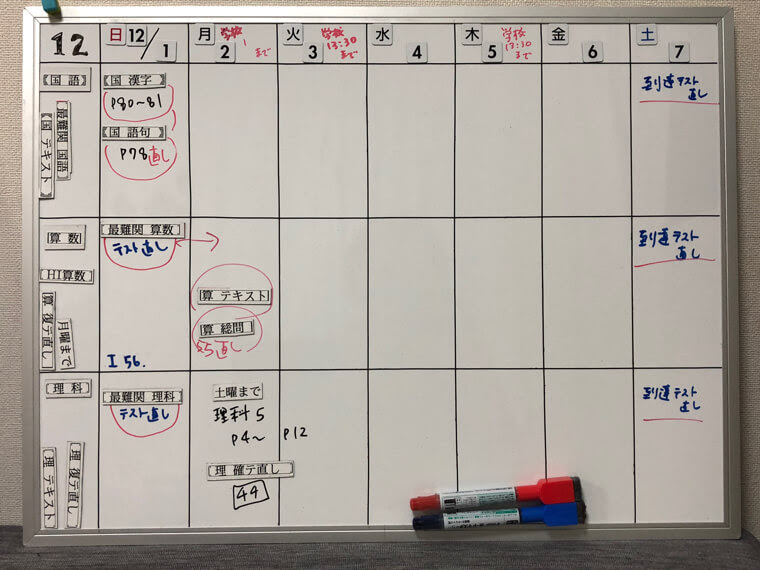 12
日 12/1
月 2
学校
まで
火 3
学校
13:30
まで
水 4
木 5
学校
13:30
まで
金 6
土 7
【国 語】
最難関 国語
【国 テキスト】
【国 漢字】
P80〜81
【国 語句】
P78直し
到達テスト
直し
算 数
HI算数
算 復テ直し
月曜まで
最難関 算数
テスト直し
I 56.
算 テキスト
算 総問
55直し
到達テスト
直し
理 科
理 テキスト
理 復テ直し
最難関 理科
テスト直し
土曜まで
理科5
P4〜 P12
理 確テ直し
44
到達テスト
直し